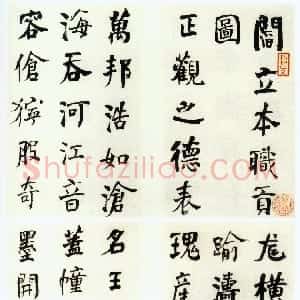 閻立本職貢
圖
正觀之德来
萬邦浩如滄
海吞河江音
容傖獰服奇
尨橫
踰濤
瑰產
名王
蓋幢
墨開
Shufaziliao.com